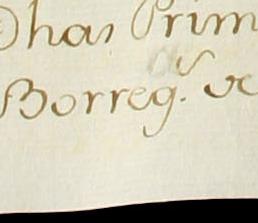 Dhas Prim
Borreg.